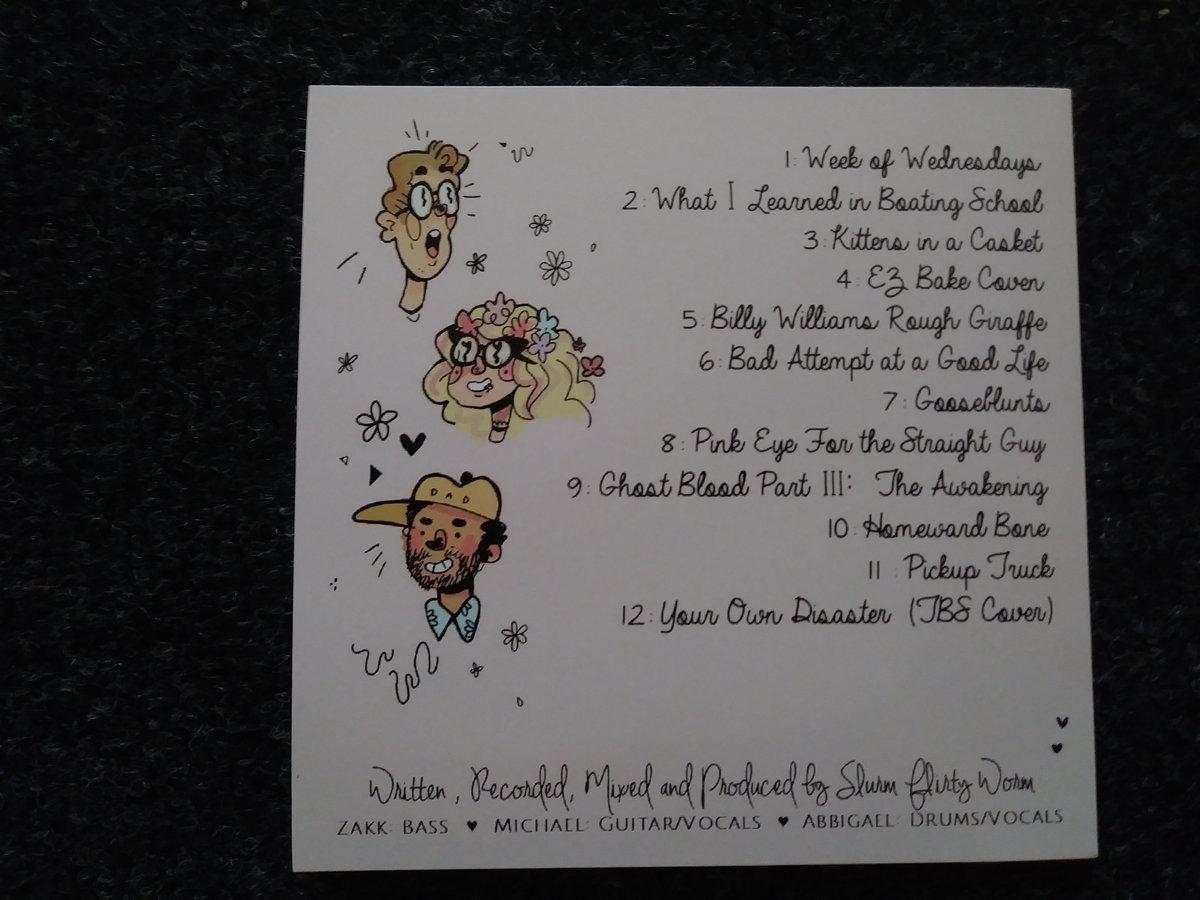 1: Week of Wednesdays
2: What I Learned in Boating School
3: Kittens in a Casket
4: EZ Bake Coven
5: Billy Williams Rough Giraffe
6: Bad Attempt at a Good Life
7: Gooseblunts
8: Pink Eye For the Straight Guy
9: Ghost Blood Part III: The Awakening
10: Homeward Bone
11: Pickup Truck
12: Your Own Disaster (TBS Cover)
DAD
Written, Recorded, Mixed and Produced by Slurm Flirty Worm
ZAKK: BASS ♥ MICHAEL: GUITAR/VOCALS ♥ ABBIGAEL: DRUMS/VOCALS